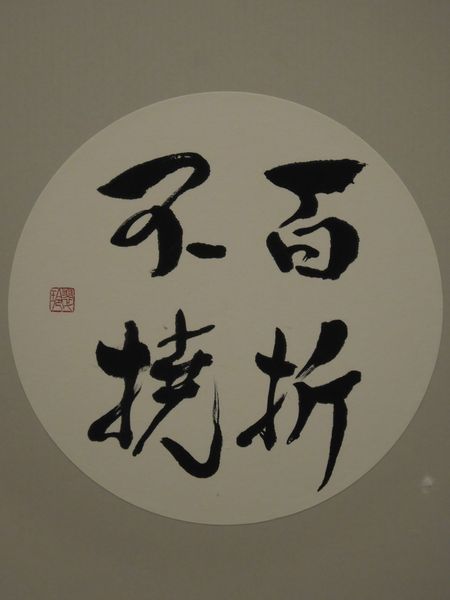 百折
不撓